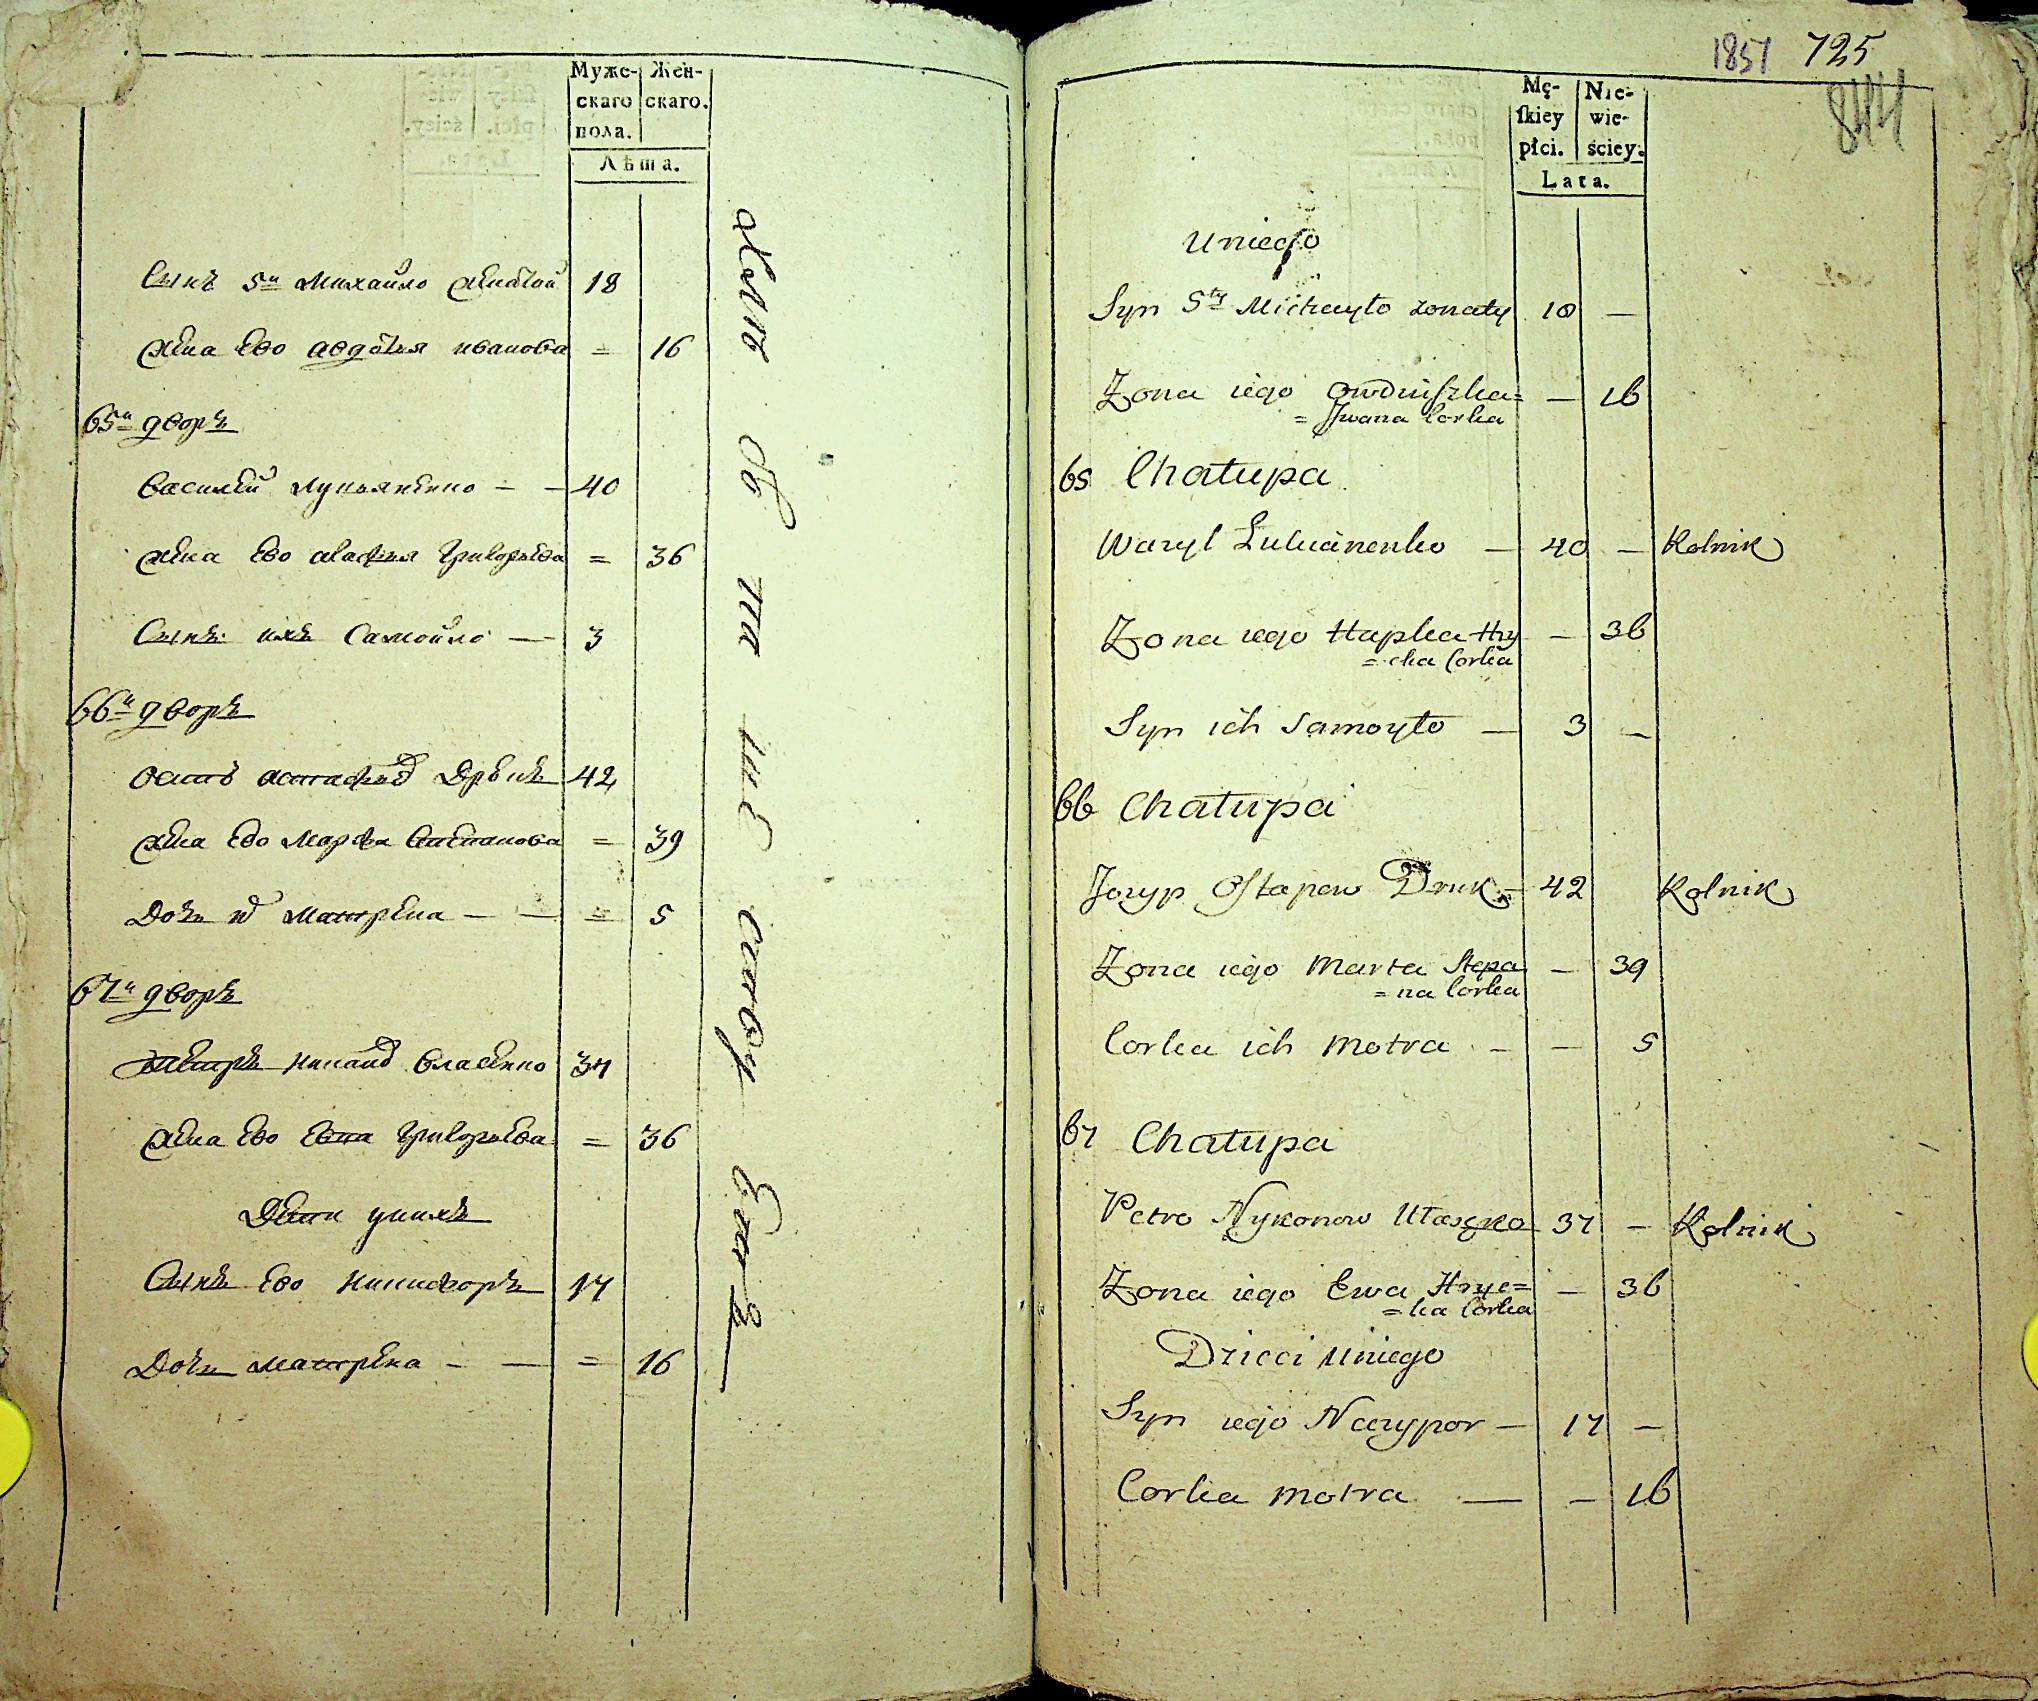 Муже-
скаго
пола.
Жен-
скаго.
Лѣта.
Сынъ 5й Михайло женатой 18
Жена ево авдотья иванова = 16
65й дворъ
Василей Лукьяненко — — 40
жена ево агафья Григорьева = 36
Сынъ ихъ Самойло — 3
66й дворъ
Осипъ астафьев Друкъ 42
жена ево Марфа Степанова = 39
Дочь их Матрена — — = 5
67й дворъ
Петръ Никонов Власенко 37
жена ево Евва Григорьева = 36
Дети унихъ
Сынъ ево никифоръ 17
Дочь матрена — — = 16
1851 725
844
Mę-
skiey
płci.
Nie-
wie-
ściey.
Lata.
uniego
Syn 5ty Michayło żonaty 18 —
Żona iego Owdiuszka= — 16
= Jwana Corka
65 Chałupa
Wazyl Łukianenko — 40 — Rolnik
Żona iego Hapka Hry — 36
= cka Corka
Syn ich Samoyło — 3 —
66 Chałupa
Jozyp Ostapow Druk — 42 Rolnik
Żona iego Marta Stepa — 39
= na Corka
Corka ich Motra — — 5
67 Chałupa
Petro Nykonow Ułasenko 37 — Rolnik
Żona iego Ewa Hryc= — 36
= ka Corka
Dzieci uniego
Syn iego Neczypor — 17 —
Corka Motra — — 16